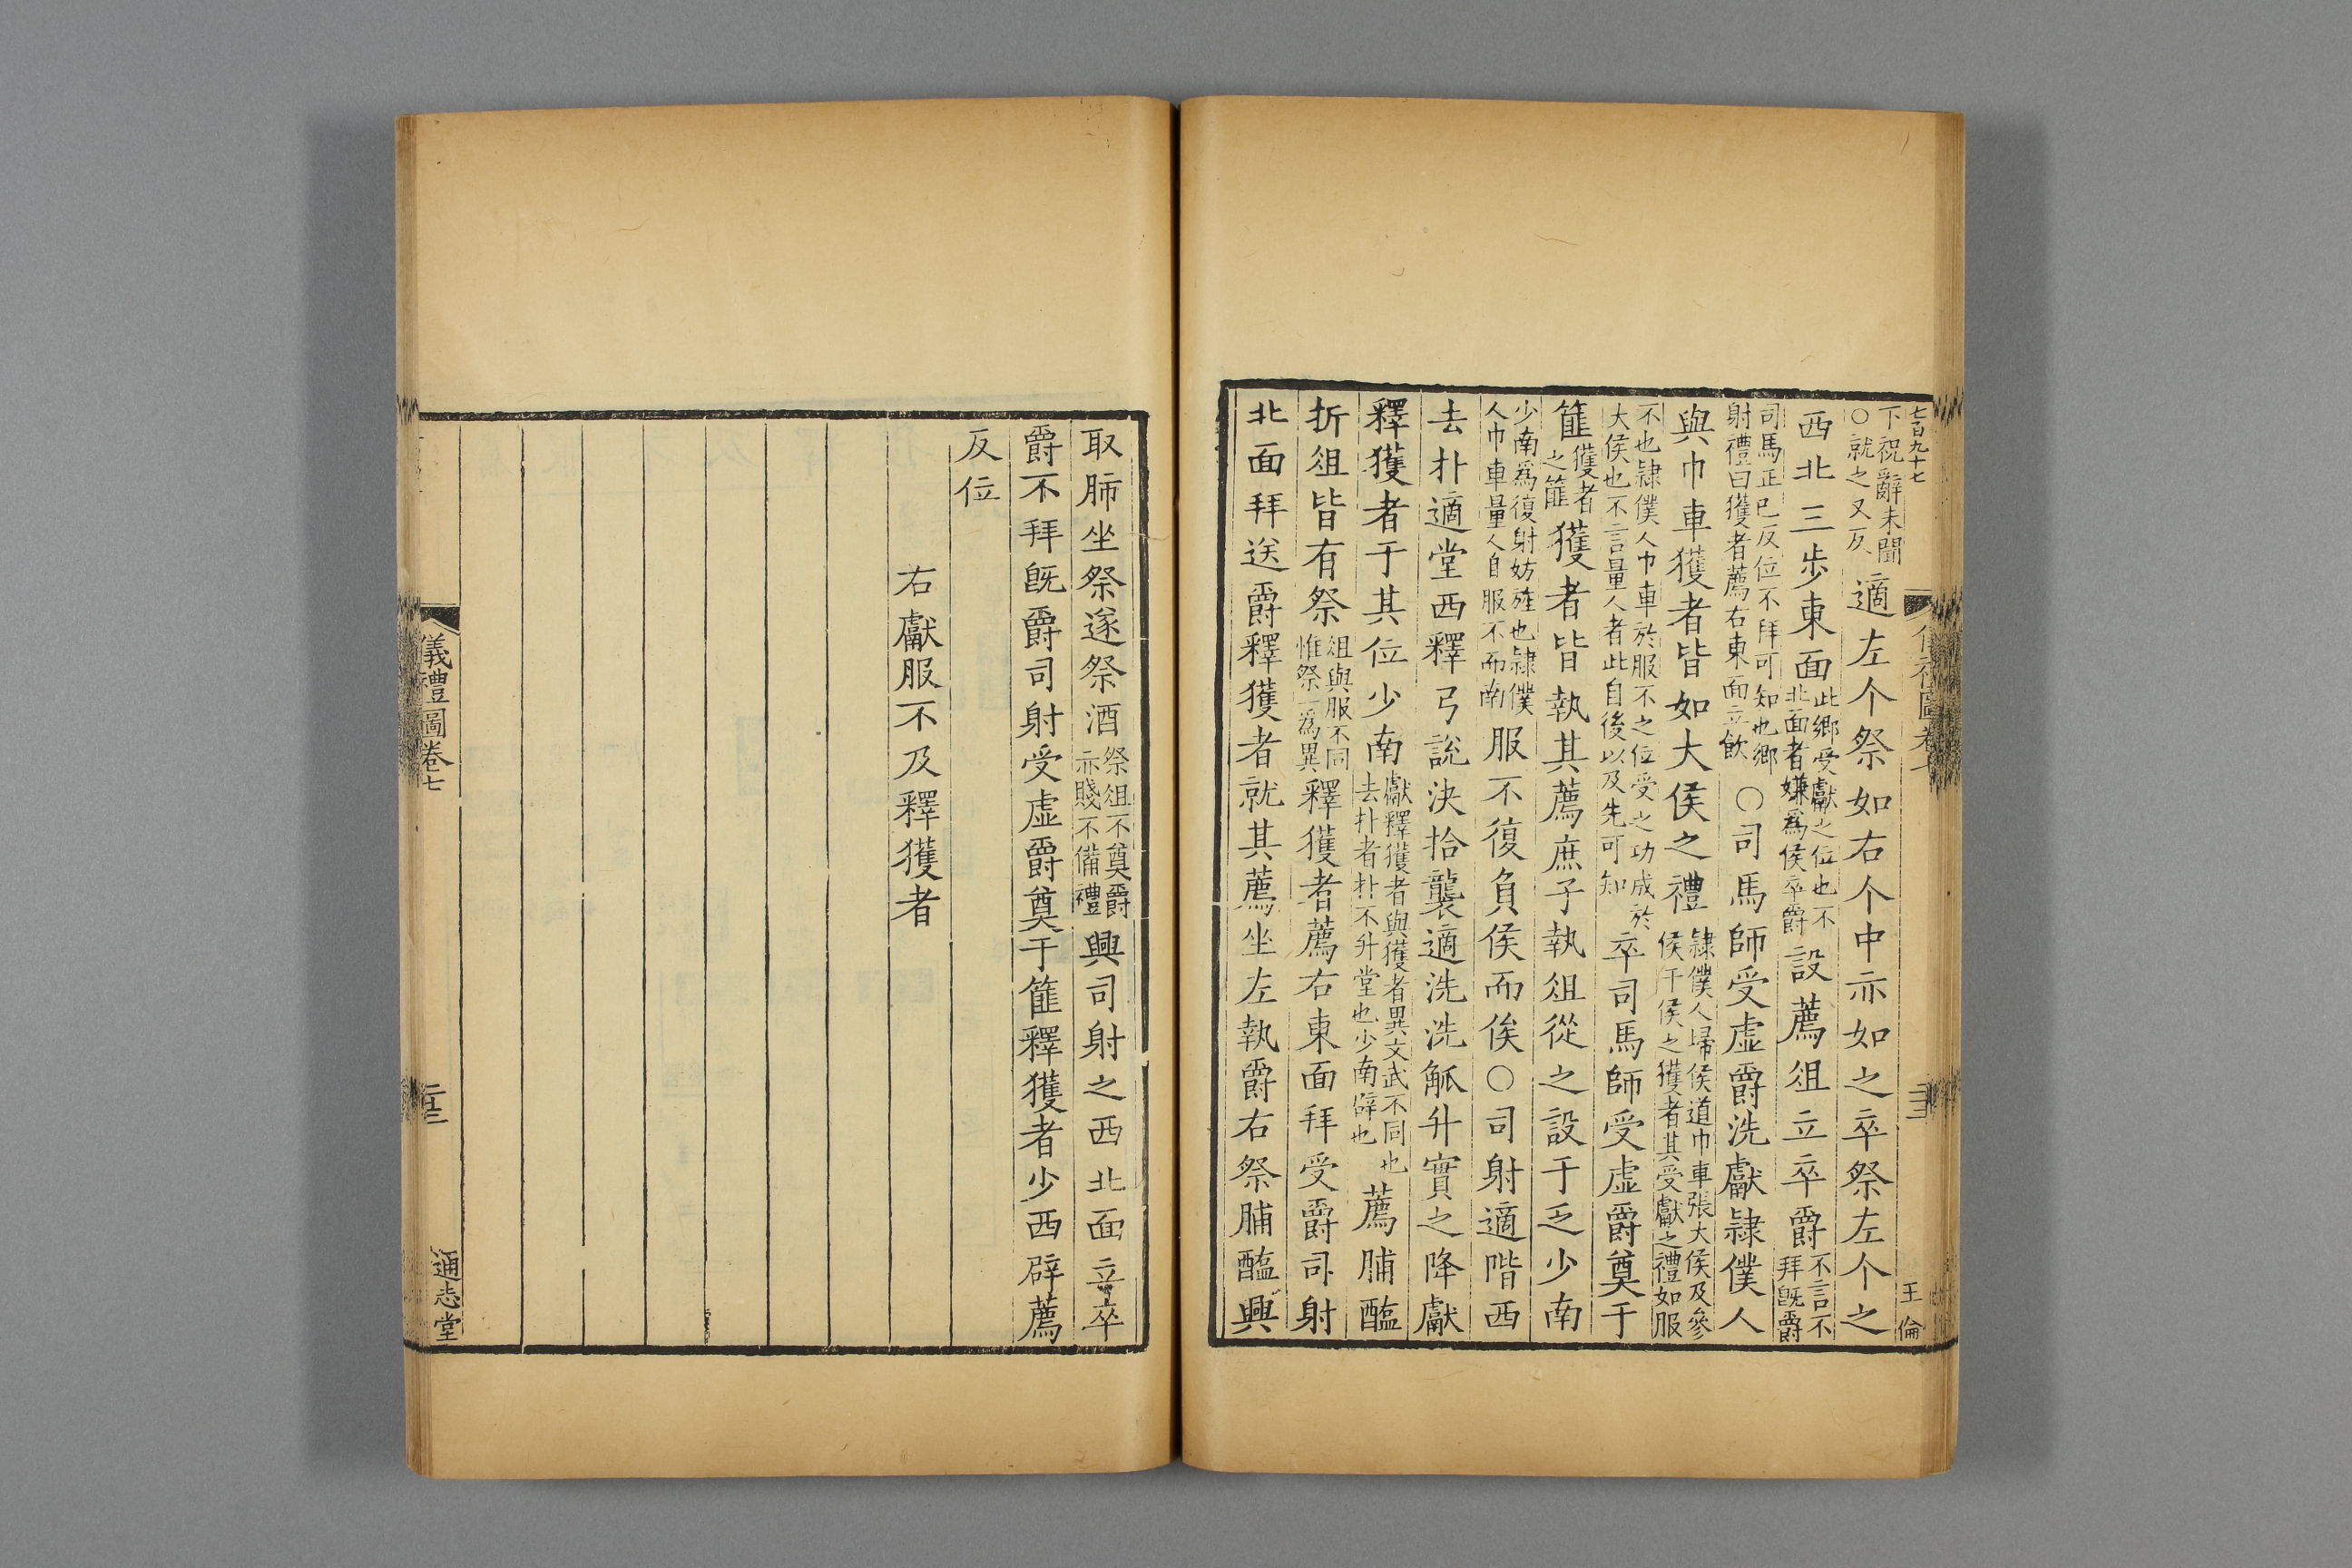 七百九十七
下祝辭未聞
○就之又反
適左个祭如右个中亦如之卒祭左个之
西北三步東面
此鄉受獻之位也不
北面者嫌為侯卒爵
設薦俎立卒爵
不言不
拜旣爵
司馬正已反位不拜可知也鄉
射禮曰獲者薦右東面立飲
○司馬師受虛爵洗獻隷僕人
與巾車獲者皆如大侯之禮
隷僕人埽侯道巾車張大侯及參
侯干侯之獲者其受獻之禮如服
不也隷僕人巾車於服不之位受之功成於
大侯也不言量人者此自後以及先可知
卒司馬師受虛爵奠于
篚
獲者
之篚
獲者皆執其薦庶子執俎從之設于乏少南
少南爲復射妨旌也隷僕
人巾車量人自服不而南
服不復負侯而俟○司射適階西
去扑適堂西釋弓說決拾襲適洗洗觚升實之降獻
釋獲者于其位少南
獻釋獲者與獲者異文武不同也
去扑者扑不升堂也少南辟也
薦脯醢
折俎皆有祭
俎與服不同
惟祭一爲異
釋獲者薦右東面拜受爵司射
北面拜送爵釋獲者就其薦坐左執爵右祭脯醢興
王倫
取肺坐祭遂祭酒
祭俎不奠爵
亦賤不備禮
興司射之西北面立卒
爵不拜旣爵司射受虛爵奠于篚釋獲者少西辟薦
反位
右獻服不及釋獲者
儀禮圖卷七
通志堂